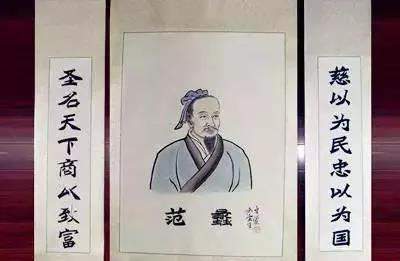 慈以为民忠以为国
范蠡
圣名天下商以致富